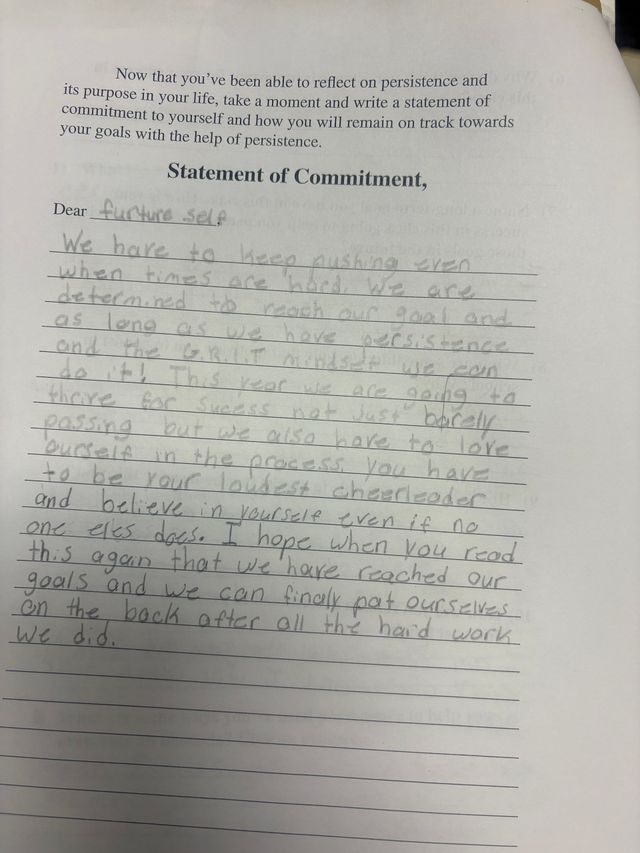 Now that you've been able to reflect on persistence and
its purpose in your life, take a moment and write a statement of
commitment to yourself and how you will remain on track towards
your goals with the help of persistence.
Statement of Commitment,
Dear furture self,
We have to keep pushing even
when times are hard. We are
determined to reach our goal and
as long as we have persistence
and the G.R.I.T mindset we can
do it! This year we are going to
thrive for sucess not just barely
passing but we also have to love
ourself in the process. You have
to be your loudest cheerleader
and believe in yourself even if no
one eles does. I hope when you read
this again that we have reached our
goals and we can finaly pat ourselves
on the back after all the hard work
we did.